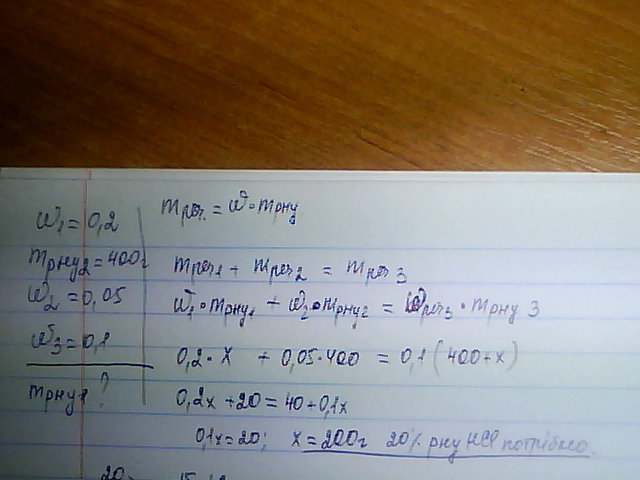 ω₁ = 0,2
mр-ну₂ = 400г
ω₂ = 0,05
ω₃ = 0,1
mр-ну₁ ?
mреч. = ω · mр-ну
mреч₁ + mреч₂ = mреч₃
ω₁ · mр-ну₁ + ω₂ · mр-ну₂ = ωреч₃ · mр-ну 3
0,2 · x + 0,05 · 400 = 0,1 (400 + x)
0,2x + 20 = 40 + 0,1x
0,1x = 20; x = 200г 20% р-ну HCl потрібно.
20